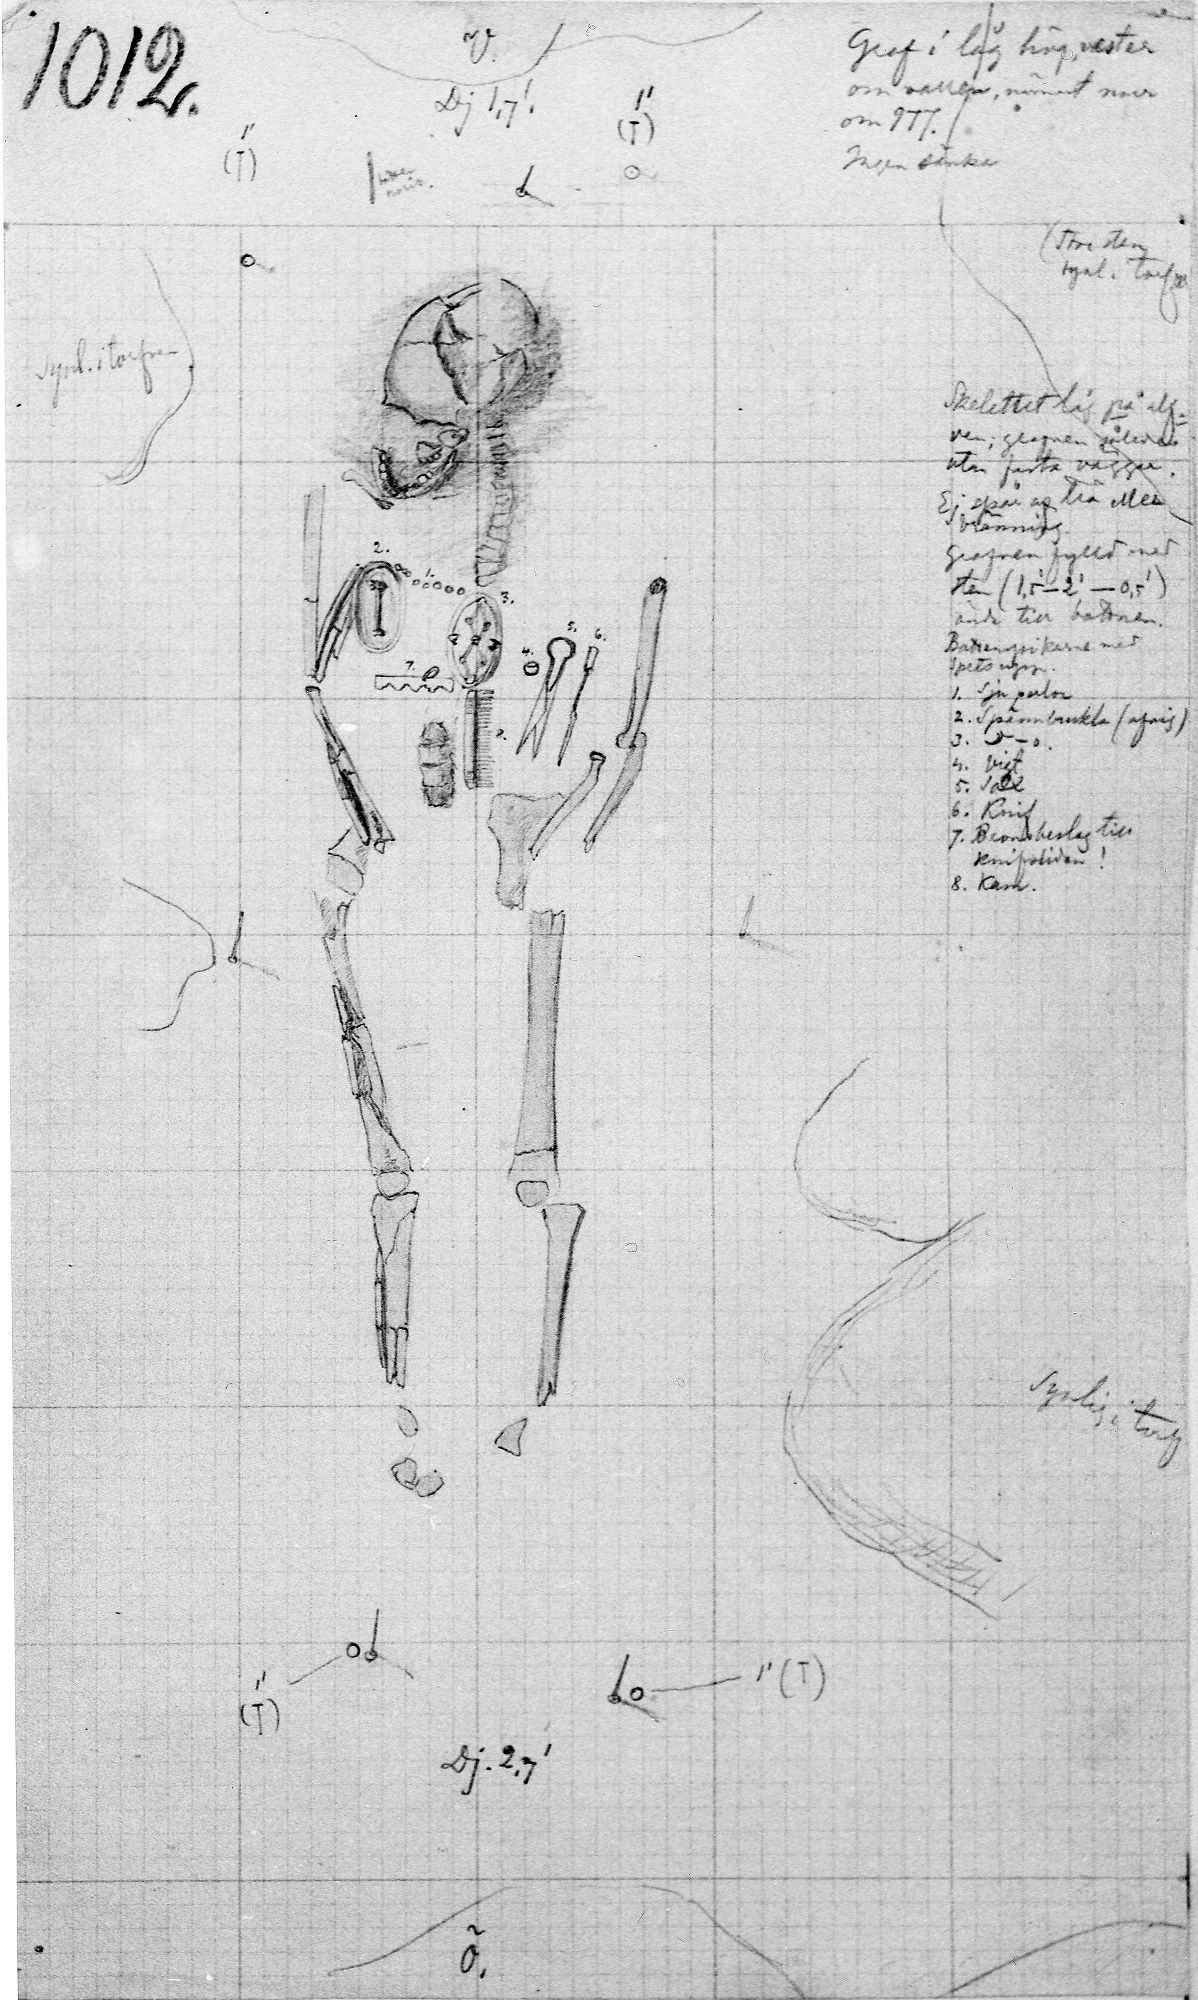 1012.
V.
Dj 1,7'.
1'
(T)
1'
(T)
Graf i låg hög, vester
om vallen, närmast norr
om 977.
Ingen sänka
(Stor sten
synl. i torfven
Synl. i torfven
Skelettet låg på alf-
ven; grafven således
utan fasta väggar.
Ej spår af trä eller
bränning.
grafven fylld med
sten (1,5'-2' — 0,5')
ända till bottnen.
med
1. Sju perlor
2. Spännbuckla (afvig)
3. D—o.
4. Vigt
5. Sax
6. Knif
7. Bronsbeslag till
knifslidan!
8. Kam.
2.
1.
3.
4.
5.
6.
7.
8.
Synlig i torf
1'
(T)
1' (T)
Dj. 2,7'
Ö.